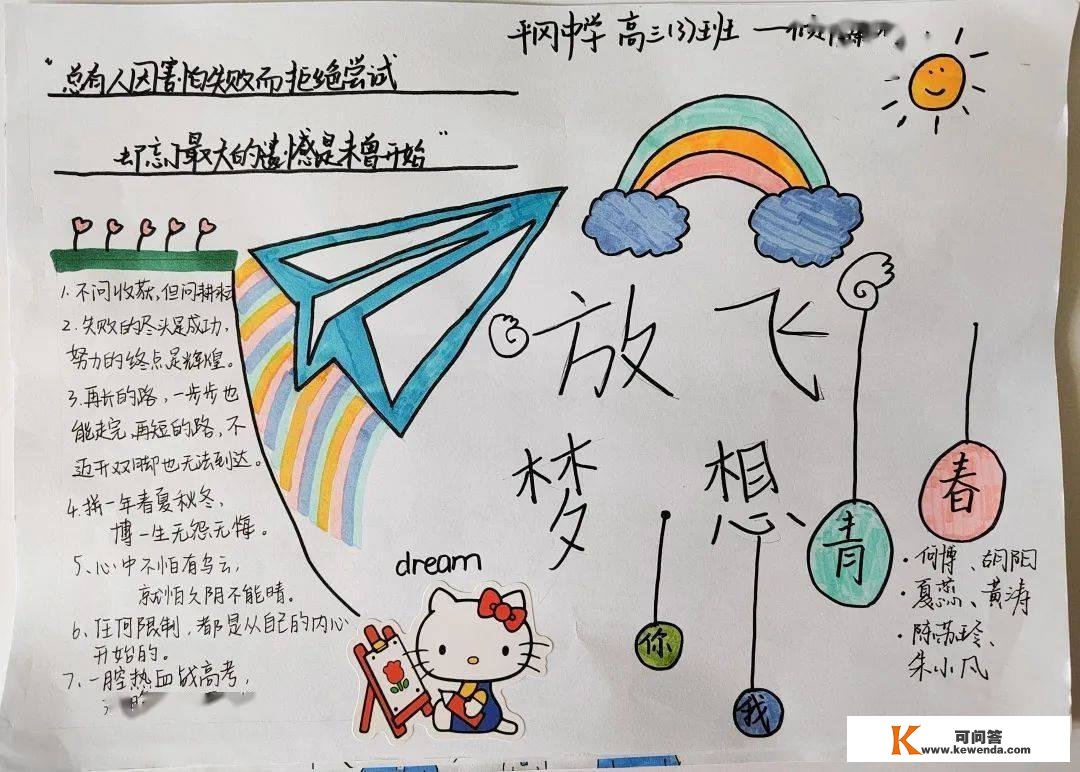 平冈中学 高三(3)班
"总有人因害怕失败而拒绝尝试
却忘了最大的遗憾是未曾开始"
1. 不问收获,但问耕耘
2. 失败的尽头是成功,
努力的终点是辉煌。
3. 再长的路,一步步也
能走完,再短的路,不
迈开双脚也无法到达。
4. 拼一年春夏秋冬,
博一生无怨无悔。
5、心中不怕有乌云,
就怕久阴不能晴。
6、任何限制,都是从自己的内心
开始的。
7、一腔热血战高考,
放飞
梦想
青
春
你
我
dream
·何博、胡阳
·夏蕊、黄涛
·陈苏玲、
朱小凡
K 可问答
www.kewenda.com